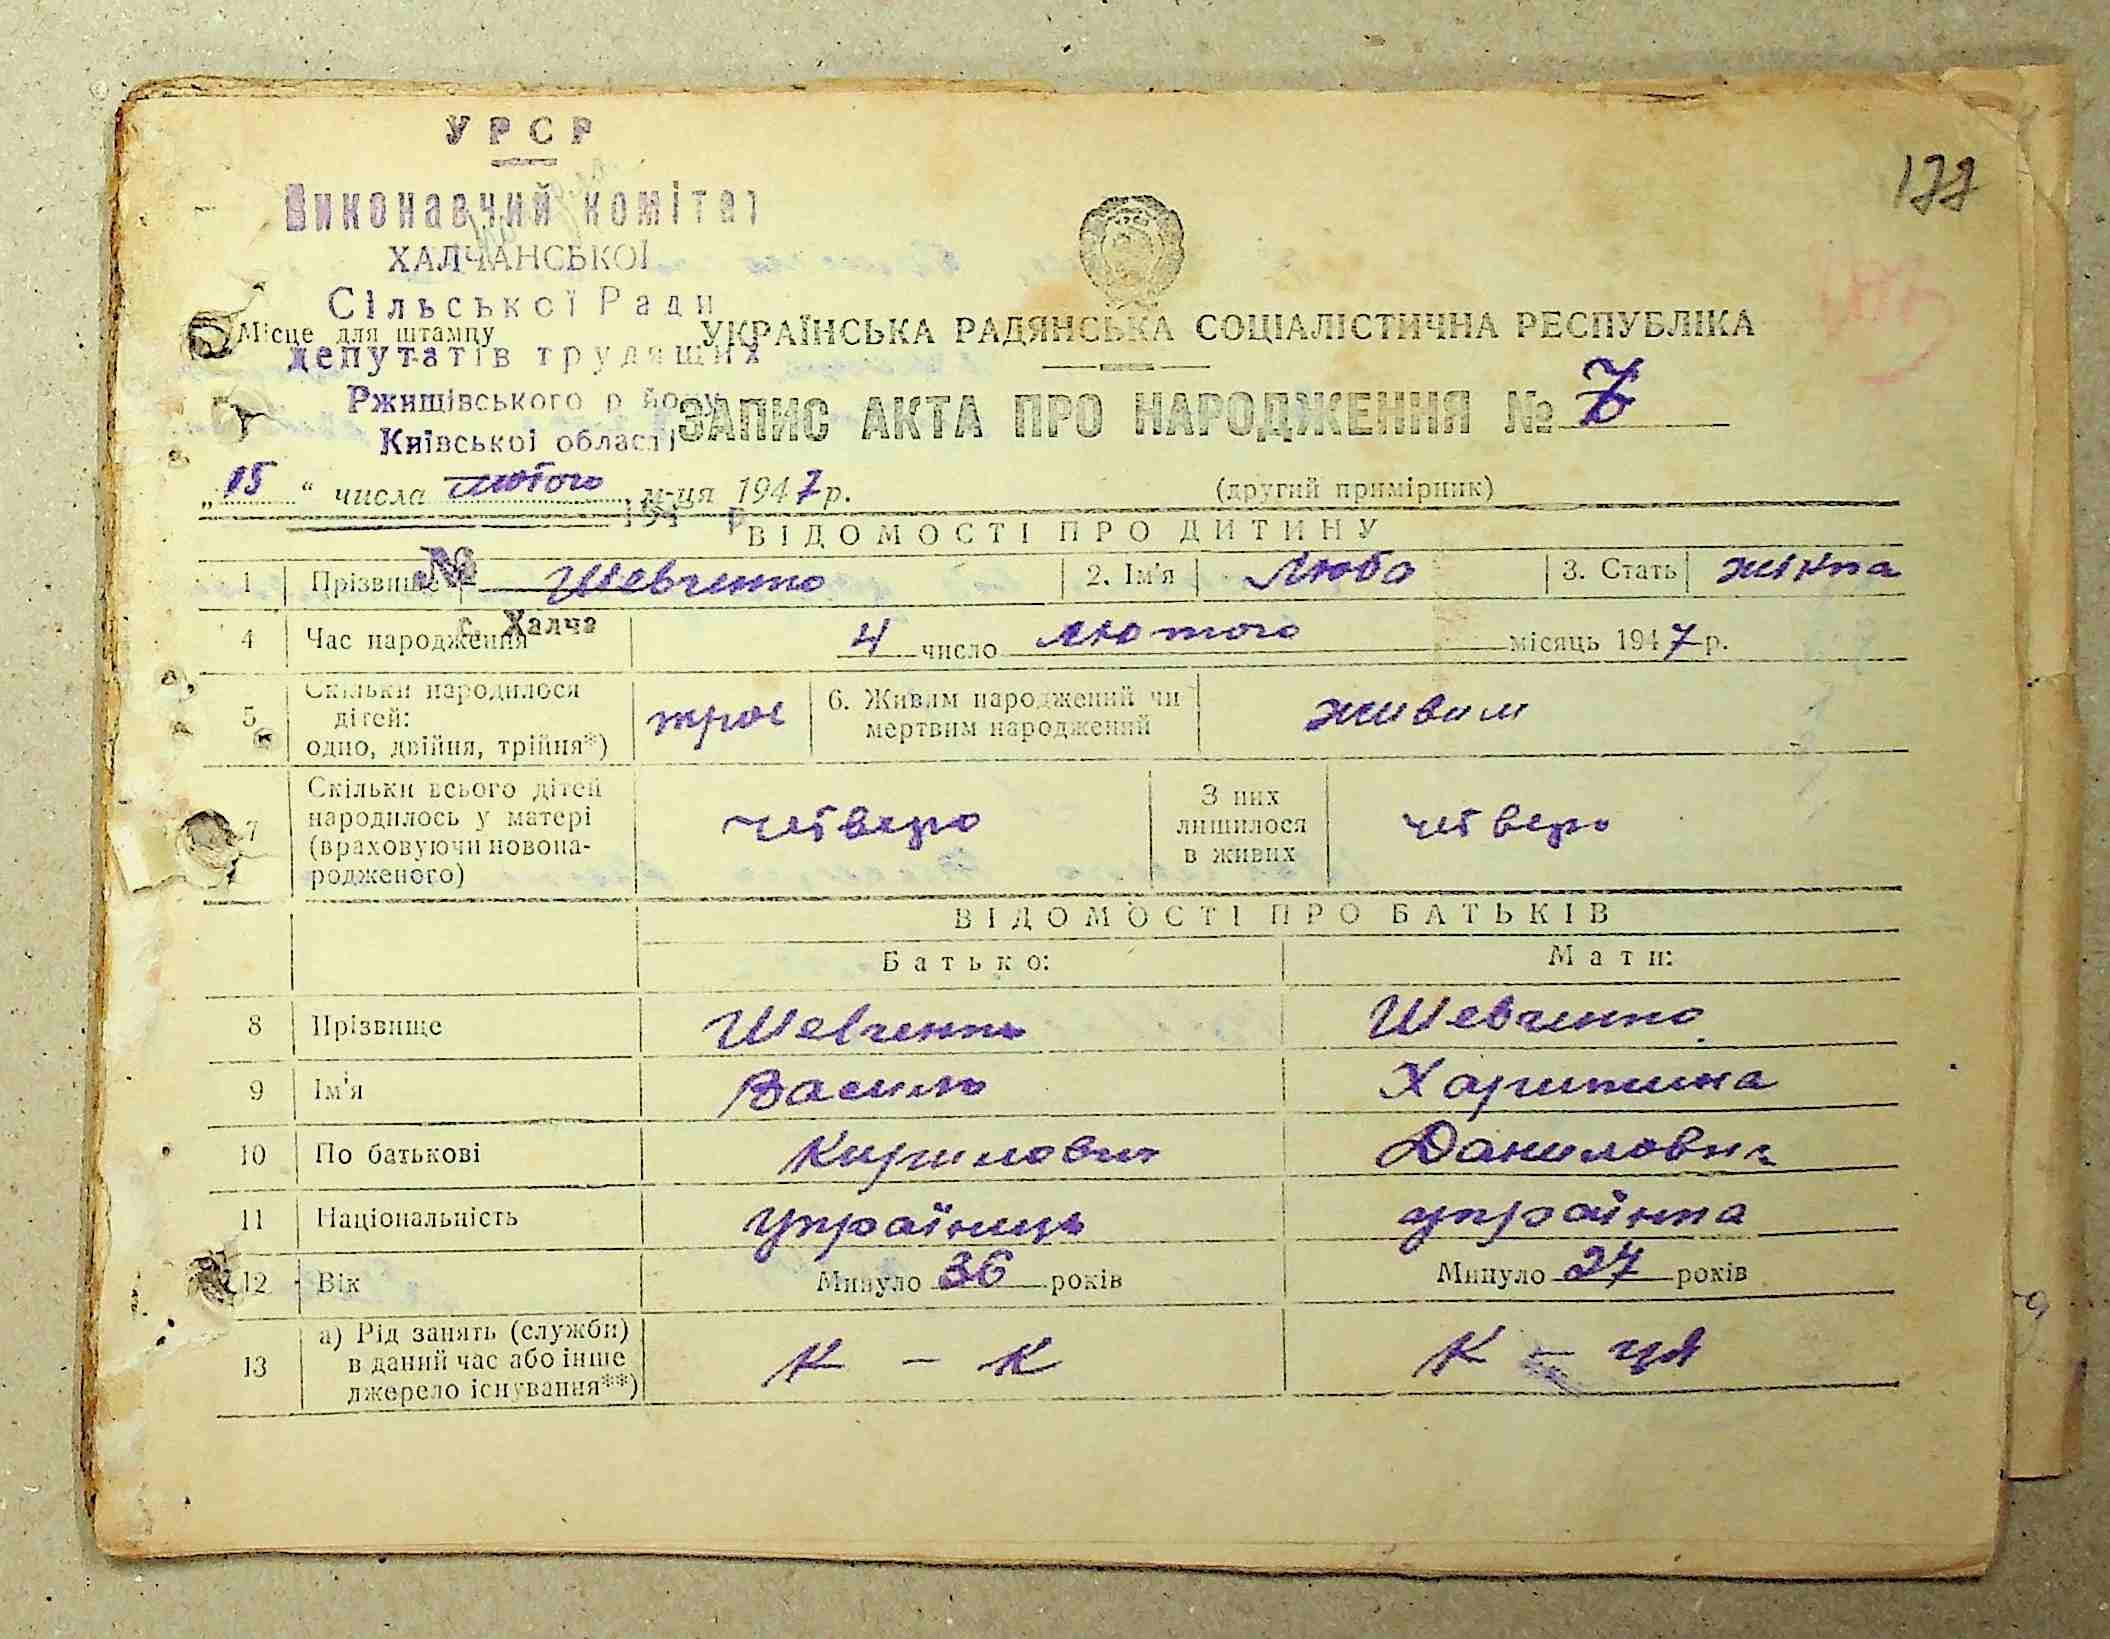 177
УРСР
Виконавчий комітет
ХАЛЧАНСЬКОЇ
Сільської Ради
Місце для штампу
депутатів трудящих
Ржищівського р йону
Київської області
УКРАЇНСЬКА РАДЯНСЬКА СОЦІАЛІСТИЧНА РЕСПУБЛІКА
ЗАПИС АКТА ПРО НАРОДЖЕННЯ № 7
„15“ числа лютого м-ця 1947 р.
(другий примірник)
194 р
ВІДОМОСТІ ПРО ДИТИНУ
№
1 Прізвище Шевченко 2. Ім'я Люба 3. Стать жінка
с. Халча
4 Час народження 4 число лютого місяць 1947 р.
5 Скільки народилося дітей: одно, двійня, трійня*) троє 6. Живим народжений чи мертвим народжений живим
7 Скільки всього дітей народилось у матері (враховуючи новонародженого) четверо З них лишилося в живих четверо
ВІДОМОСТІ ПРО БАТЬКІВ
Батько: Мати:
8 Прізвище Шевченко Шевченко
9 Ім'я Василь Харитина
10 По батькові Кирилович Даниловна
11 Національність українець українка
12 Вік Минуло 36 років Минуло 27 років
13 а) Рід занять (служби) в даний час або інше джерело існування**) к - к к - ця